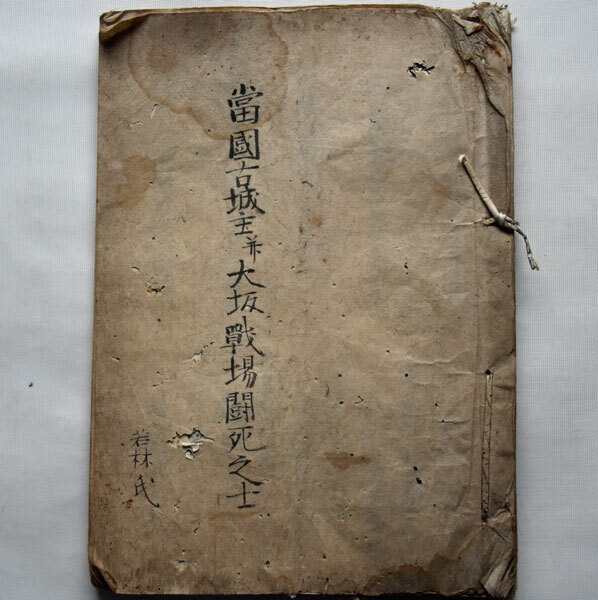 當國古城主并大坂戰場鬪死之士
若林氏